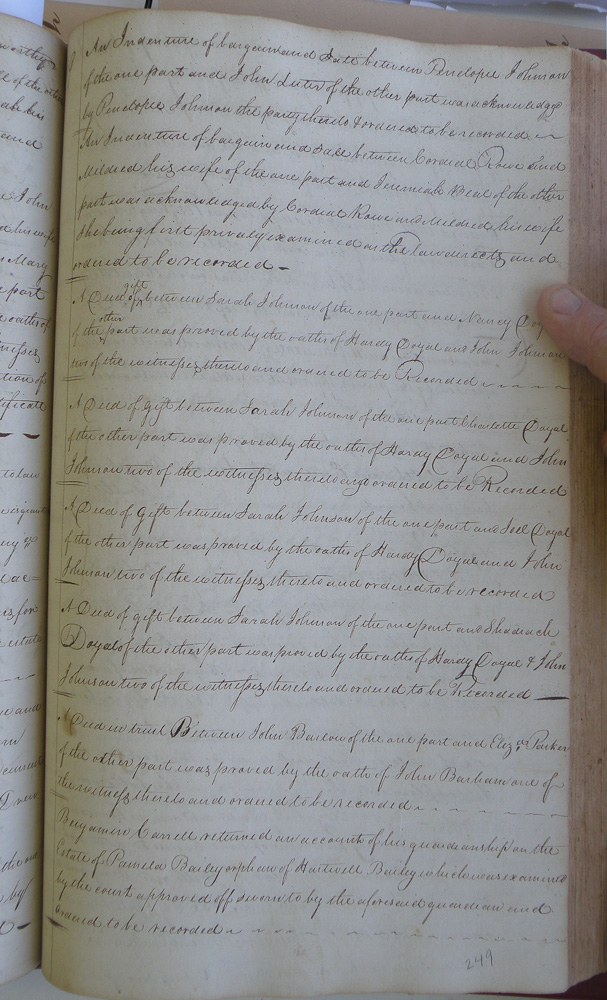 An Indenture of bargain and Sale between Penelope Johnson
of the one part and John Luter of the other part was acknowledge
by Penelope Johnson the party thereto & ordered to be recorded
An Indenture of bargain and Sale between Cordial Rowe and
Mildred his wife of the one part and Jeremiah Beal of the other
part was acknowledged by Cordial Rowe and Mildred his wife
she being first privately examined as the law directs and
ordered to be recorded -
A Deed of gift between Sarah Johnson of the one part and Nancy
of the other part was proved by the oaths of Hardy Doyal and John Johnson
two of the witnesses thereto and ordered to be Recorded
A Deed of gift between Sarah Johnson of the one part Charlotte Doyal
of the other part was proved by the oaths of Hardy Doyal and John
Johnson two of the witnesses thereto and ordered to be Recorded
A Deed of Gift between Sarah Johnson of the one part and Joel Doyal
of the other part was proved by the oaths of Hardy Doyal and John
Johnson two of the witnesses thereto and ordered to be recorded
A Deed of gift between Sarah Johnson of the one part and Shadrach
Doyal of the other part was proved by the oaths of Hardy Doyal & John
Johnson two of the witnesses thereto and ordered to be Recorded
A Deed in trust Between John Barlow of the one part and Eliza Parker
of the other part was proved by the oath of John Barham one of
the witness thereto and ordered to be recorded
Benjamin Carrell returned an account of his guardianship on the
Estate of Pamela Bailey orphan of Hartwell Bailey which was examined
by the court approved off sworn to by the aforesaid guardian and
ordered to be recorded
249